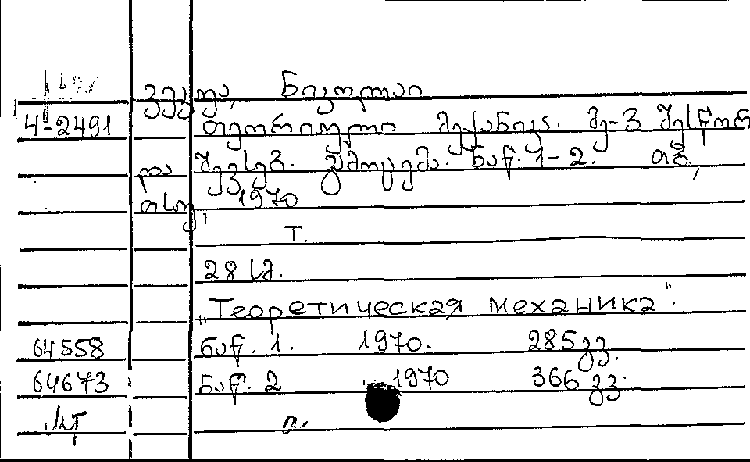 კეკუა, ნიკოლაი
4-2491 თეორიული მექანიკა. მე-3 შესწორ.
და შევსებ. გამოცემა. ნაწ. 1-2. თბ.,
თსუ, 1970
т.
28 სმ.
"Теоретическая механика".
64558 ნაწ. 1. 1970. 285გვ.
64673 ნაწ. 2 1970 366გვ.